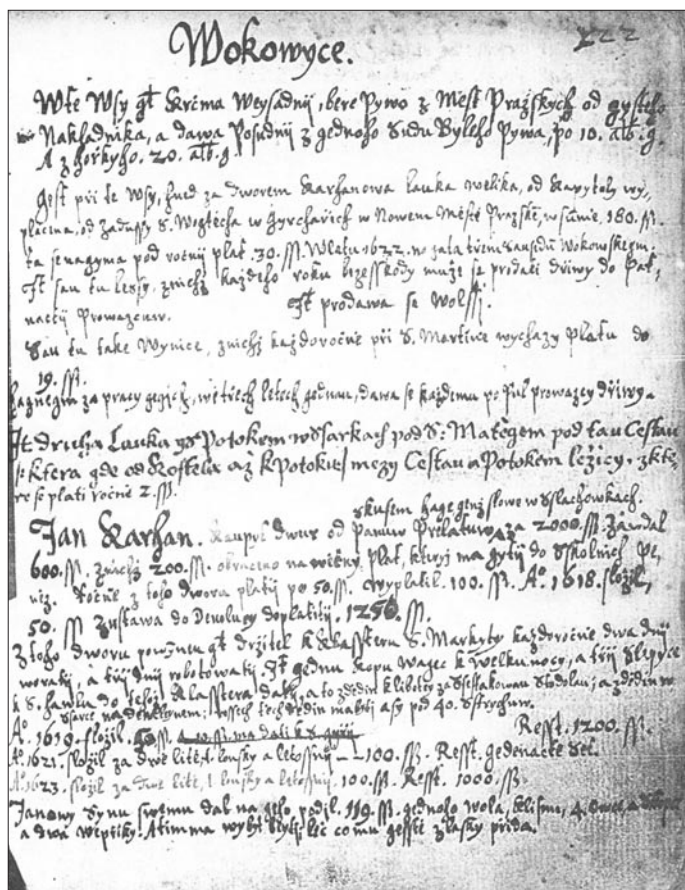 122
Wokowyce.
Wte Wsy gt Krčma Weysadnij, bere Pywo z Mest Pražskych od gysteho
Nakladnika, a dawa Posudnij z gednoho Sudu Byleho Pywa, po 10. alb. g.
A z hořkyho. 20. alb. g
Gest při te Wsy, hned za dworem Karhanowa Lauka welika, od Kapytoly wy,
placena, od Zadussy S. Wogtěcha w Gyrchařich w Nowem Městě Pražskē, w sumě. 180. ss.
ta se nagyma pod ročnij plat. 30. ss. W Letu 1622. třem Sausedū Wokowskeym.
It sau tu Lessy, znichž každeho roku bez esskody muže se prodati dřiwy do Pat,
nacti Prowazcuw. It prodawa se Wolssj.
Sau tu take Wynice, znichž každoročně při S. Martině wychazy Platu do
19. ss.
za pracy gegich, we třech letech gednau, dawa se každemu po pul prowazcy dřiwy.
It druha Lauka Potokem w Ssarkach pod S. Matěgem pod tau Cestau
Ktera gde od Kostela až k Potoku mezy Cestau a Potokem ležicy, z kte,
re se plati ročně 2. ss.
s kusem hage genž slowe w Slachowkach.
Jan Karhan. Kaupil dwur od Panuw Prelatuw za 2000. ss. Zawdal
600. ss. znichž 200. ss. obraceno na wěčny plat, kteryž ma gyti do Sskolnich Pe,
něz. Ročně z toho dworu platij po 50. ss. Wyplatil. 100. ss. A° 1618. složil,
50. ss Zustawa do Deuolucy doplatiti, 1250. ss.
Z toho dworu powinen gt držitel k Klassteru S. Markyty každoročně dwa dnij
worati, a třij dnij robotowati. It gednu Kopu Wagec k Welkunocy, a třij Slepyce
k S. Hawlu do tehož Klasstera dati, a to z dědin k Libocy za Ssestakowau Stodolau, a z dědin w
Ssarce nad wssech těch dědin ma byti asy pod 40. Strychuw.
A° 1619. složil. 50. ss. Resst. 1200. ss.
A° 1621. složil za dwě litě, lonsky a letossnij — 100. ss. Resst. gedenacte set.
A° 1623. složil za dwě litě, lonsky a letossnij. 100. ss. Resst. 1000. ss.
Janowy Synu swemu dal na geho podil. 119. ss. gednoho wola, klisnu, 4. owce, a
a dwa wepřiky. A tim ma wybyt byti, leč co mu gesstě z lasky přida.